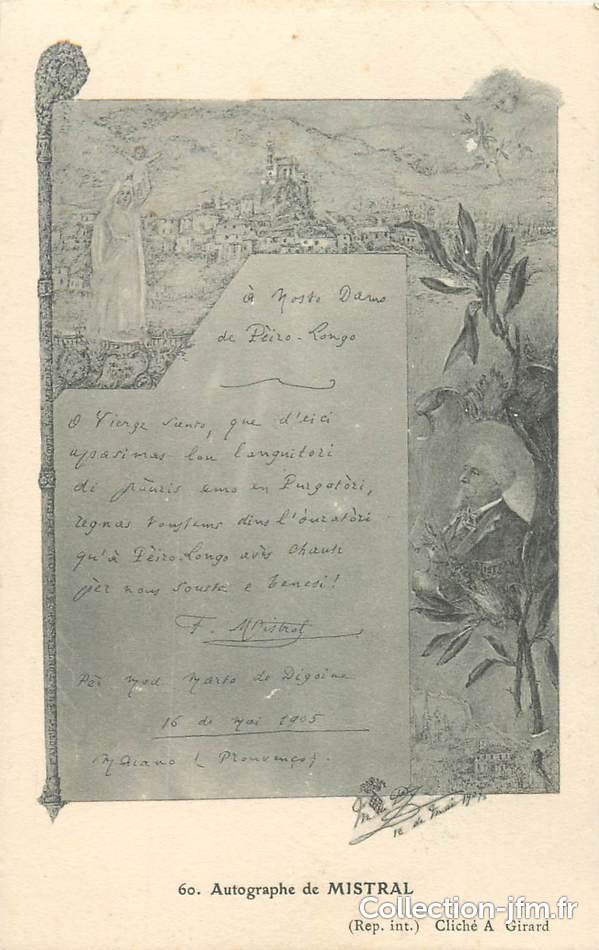 à Nosto Damo
de Pèiro-Longo
O Vierge santo, que d'eici
apasimas lou languitòri
di pàuris amo en Purgatòri,
regnas toustèms dins l'ouratòri
qu'à Pèiro-Longo avès chausi
pèr nous souste e benesi!
F. Mistral
Pèr Mad Marto de Digoine
16 de mai 1905
Maiano (Prouvènço).
de Mai
60. Autographe de MISTRAL
(Rep. int.) Cliché A Girard
Collection-jfm.fr